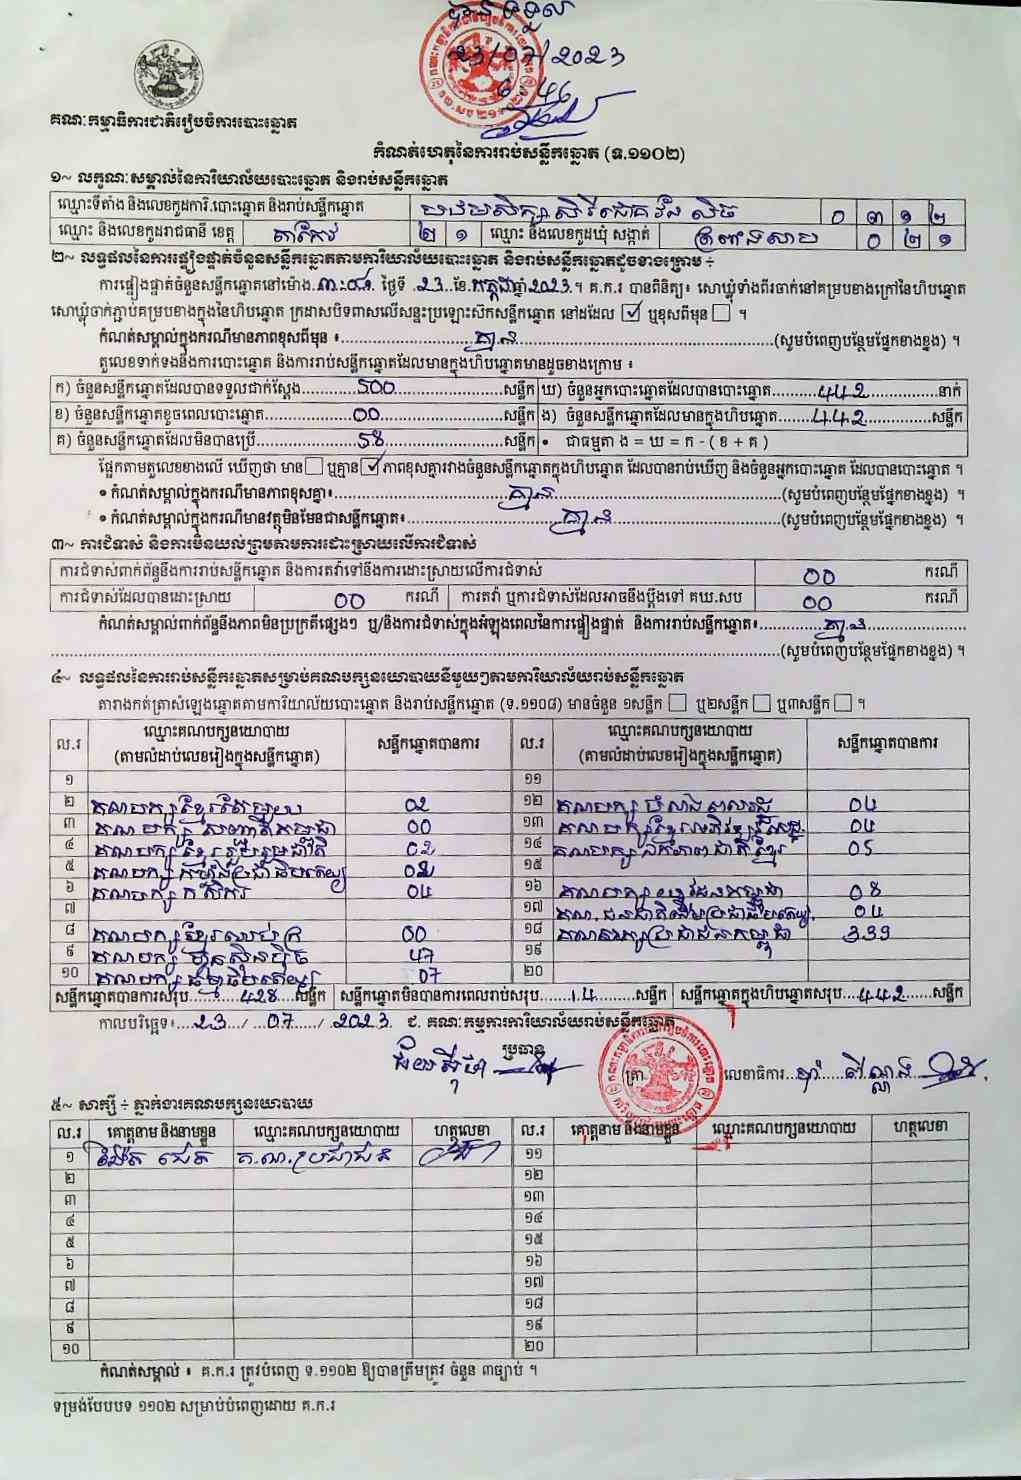 បានទទួល
23/07/2023
6:46
គណៈកម្មាធិការជាតិរៀបចំការបោះឆ្នោត
កំណត់ហេតុនៃការរាប់សន្លឹកឆ្នោត (ទ.១១០២)
១~ លក្ខណៈសម្គាល់នៃការិយាល័យបោះឆ្នោត និងរាប់សន្លឹកឆ្នោត
ឈ្មោះទីតាំង និងលេខកូដការិ.បោះឆ្នោត និងរាប់សន្លឹកឆ្នោត បឋមសិក្សា សិរីជោគ ០ ៣ ១ ២
ឈ្មោះ និងលេខកូដរាជធានី ខេត្ត តាកែវ ២ ១ ឈ្មោះ និងលេខកូដឃុំ សង្កាត់ 0 ២ ១
២~ លទ្ធផលនៃការផ្ទៀងផ្ទាត់ចំនួនសន្លឹកឆ្នោតតាមការិយាល័យបោះឆ្នោត និងរាប់សន្លឹកឆ្នោតដូចខាងក្រោម ÷
ការផ្ទៀងផ្ទាត់ចំនួនសន្លឹកឆ្នោតនៅម៉ោង ៣:០៨ ថ្ងៃទី 23 ខែ កក្កដា ឆ្នាំ 2023 ។ គ.ក.រ បានពិនិត្យ៖ សោឃ្លុំទាំងពីរចាក់នៅគម្របខាងក្រៅនៃហិបឆ្នោត
សោឃ្លុំចាក់ភ្ជាប់គម្របខាងក្នុងនៃហិបឆ្នោត ក្រដាសបិទពាសលើសន្ទះប្រឡោះស៊កសន្លឹកឆ្នោត នៅដដែល ☑ ឬខុសពីមុន ☐ ។
កំណត់សម្គាល់ក្នុងករណីមានភាពខុសពីមុន ៖ គ្មាន (សូមបំពេញបន្ថែមផ្នែកខាងខ្នង) ។
តួលេខទាក់ទងនឹងការបោះឆ្នោត និងការរាប់សន្លឹកឆ្នោតដែលមានក្នុងហិបឆ្នោតមានដូចខាងក្រោម ៖
ក) ចំនួនសន្លឹកឆ្នោតដែលបានទទួលជាក់ស្តែង 500 សន្លឹក ឃ) ចំនួនអ្នកបោះឆ្នោតដែលបានបោះឆ្នោត 442 នាក់
ខ) ចំនួនសន្លឹកឆ្នោតខូចពេលបោះឆ្នោត 00 សន្លឹក ង) ចំនួនសន្លឹកឆ្នោតដែលមានក្នុងហិបឆ្នោត 442 សន្លឹក
គ) ចំនួនសន្លឹកឆ្នោតដែលមិនបានប្រើ 58 សន្លឹក • ជាធម្មតា ង = ឃ = ក - ( ខ + គ )
ផ្អែកតាមតួលេខខាងលើ ឃើញថា មាន ☐ ឬគ្មាន ☑ ភាពខុសគ្នារវាងចំនួនសន្លឹកឆ្នោតក្នុងហិបឆ្នោត ដែលបានរាប់ឃើញ និងចំនួនអ្នកបោះឆ្នោត ដែលបានបោះឆ្នោត ។
• កំណត់សម្គាល់ក្នុងករណីមានភាពខុសគ្នា៖ គ្មាន (សូមបំពេញបន្ថែមផ្នែកខាងខ្នង) ។
• កំណត់សម្គាល់ក្នុងករណីមានវត្ថុមិនមែនជាសន្លឹកឆ្នោត៖ គ្មាន (សូមបំពេញបន្ថែមផ្នែកខាងខ្នង) ។
៣~ ការជំទាស់ និងការមិនយល់ព្រមតាមការដោះស្រាយលើការជំទាស់
ការជំទាស់ពាក់ព័ន្ធនឹងការរាប់សន្លឹកឆ្នោត និងការតវ៉ាទៅនឹងការដោះស្រាយលើការជំទាស់ 00 ករណី
ការជំទាស់ដែលបានដោះស្រាយ 00 ករណី ការតវ៉ា ឬការជំទាស់ដែលអាចនឹងប្តឹងទៅ គឃ.សប 00 ករណី
កំណត់សម្គាល់ពាក់ព័ន្ធនឹងភាពមិនប្រក្រតីផ្សេងៗ ឬ/និងការជំទាស់ក្នុងអំឡុងពេលនៃការផ្ទៀងផ្ទាត់ និងការរាប់សន្លឹកឆ្នោត៖ គ្មាន
(សូមបំពេញបន្ថែមផ្នែកខាងខ្នង) ។
៤~ លទ្ធផលនៃការរាប់សន្លឹកឆ្នោតសម្រាប់គណបក្សនយោបាយនីមួយៗតាមការិយាល័យរាប់សន្លឹកឆ្នោត
តារាងកត់ត្រាសំឡេងឆ្នោតតាមការិយាល័យបោះឆ្នោត និងរាប់សន្លឹកឆ្នោត (ទ.១១០៨) មានចំនួន ១សន្លឹក ☐ ឬ២សន្លឹក ☐ ឬ៣សន្លឹក ☐ ។
ល.រ ឈ្មោះគណបក្សនយោបាយ (តាមលំដាប់លេខរៀងក្នុងសន្លឹកឆ្នោត) សន្លឹកឆ្នោតបានការ ល.រ ឈ្មោះគណបក្សនយោបាយ (តាមលំដាប់លេខរៀងក្នុងសន្លឹកឆ្នោត) សន្លឹកឆ្នោតបានការ
១ ១១
២ គណបក្សខ្មែរតែមួយ 02 ១២ គណបក្ស 04
៣ គណបក្ស សញ្ជាតិកម្ពុជា 00 ១៣ គណបក្សខ្មែរអភិវឌ្ឍន៍សេដ្ឋ. 04
៤ គណបក្សខ្មែររួបរួមជាតិ 02 ១៤ គណបក្ស ឯកភាពជាតិខ្មែរ 05
៥ គណបក្ស ប្រជាធិបតេយ្យ 02 ១៥
៦ គណបក្ស កសិករ 04 ១៦ គណបក្ស យុវជនកម្ពុជា 08
៧ ១៧ គណ. ជនជាតិដើមប្រជាធិបតេយ្យ. 04
៨ គណបក្សខ្មែរឈប់ក្រ 00 ១៨ គណបក្សប្រជាជនកម្ពុជា 339
៩ គណបក្ស ហ៊្វុនស៊ិនប៉ិច 47 ១៩
១០ គណបក្សធម្មាធិបតេយ្យ 07 ២០
សន្លឹកឆ្នោតបានការសរុប 428 សន្លឹក សន្លឹកឆ្នោតមិនបានការពេលរាប់សរុប 14 សន្លឹក សន្លឹកឆ្នោតក្នុងហិបឆ្នោតសរុប 442 សន្លឹក
កាលបរិច្ឆេទ៖ 23 / 07 / 2023 ជ. គណៈកម្មការការិយាល័យរាប់សន្លឹកឆ្នោត
ប្រធាន ត្រា លេខាធិការ
៥~ សាក្សី ÷ ភ្នាក់ងារគណបក្សនយោបាយ
ល.រ គោត្តនាម និងនាមខ្លួន ឈ្មោះគណបក្សនយោបាយ ហត្ថលេខា ល.រ គោត្តនាម និងនាមខ្លួន ឈ្មោះគណបក្សនយោបាយ ហត្ថលេខា
១ គ.ណ.ប្រជាជន ១១
២ ១២
៣ ១៣
៤ ១៤
៥ ១៥
៦ ១៦
៧ ១៧
៨ ១៨
៩ ១៩
១០ ២០
កំណត់សម្គាល់ ៖ គ.ក.រ ត្រូវបំពេញ ទ.១១០២ ឱ្យបានត្រឹមត្រូវ ចំនួន ៣ច្បាប់ ។
ទម្រង់បែបបទ ១១០២ សម្រាប់បំពេញដោយ គ.ក.រ